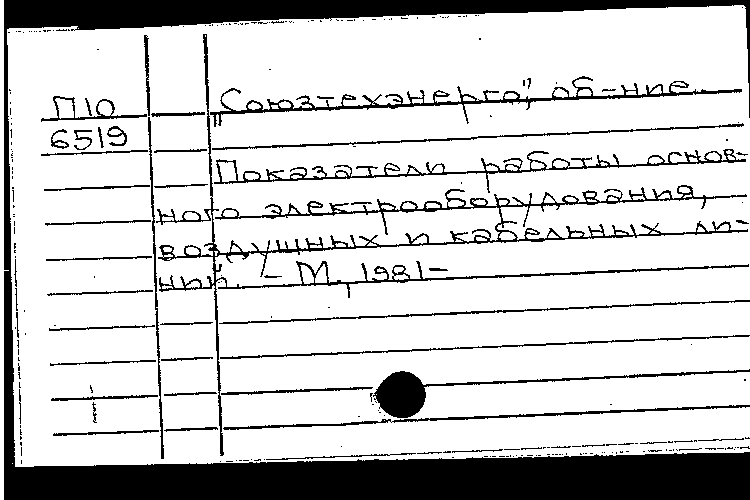 П10 „Союзтехэнерго", об-ние.
6519
Показатели работы основ-
ного электрооборудования,
воздушных и кабельных ли-
ний. – М., 1981–